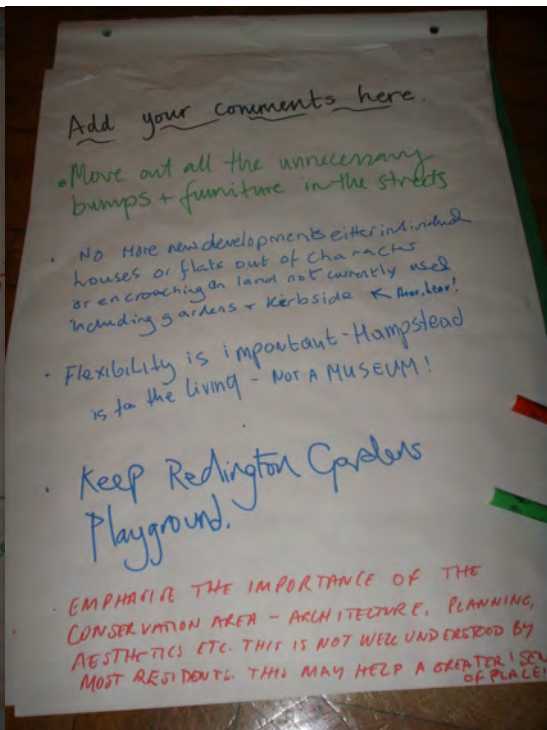 Add your comments here.
• Move out all the unnecessary
bumps + furniture in the streets
• No More new developments either individual
houses or flats out of character
or encroaching on land not currently used
including gardens + kerbside ← Hear, hear!
• Flexibility is important - Hampstead
is for the living - NOT A MUSEUM!
• Keep Redington Gardens
Playground.
• EMPHASISE THE IMPORTANCE OF THE
CONSERVATION AREA - ARCHITECTURE, PLANNING,
AESTHETICS ETC. THIS IS NOT WELL UNDERSTOOD BY
MOST RESIDENTS. THIS MAY HELP A GREATER
OF PLACE!